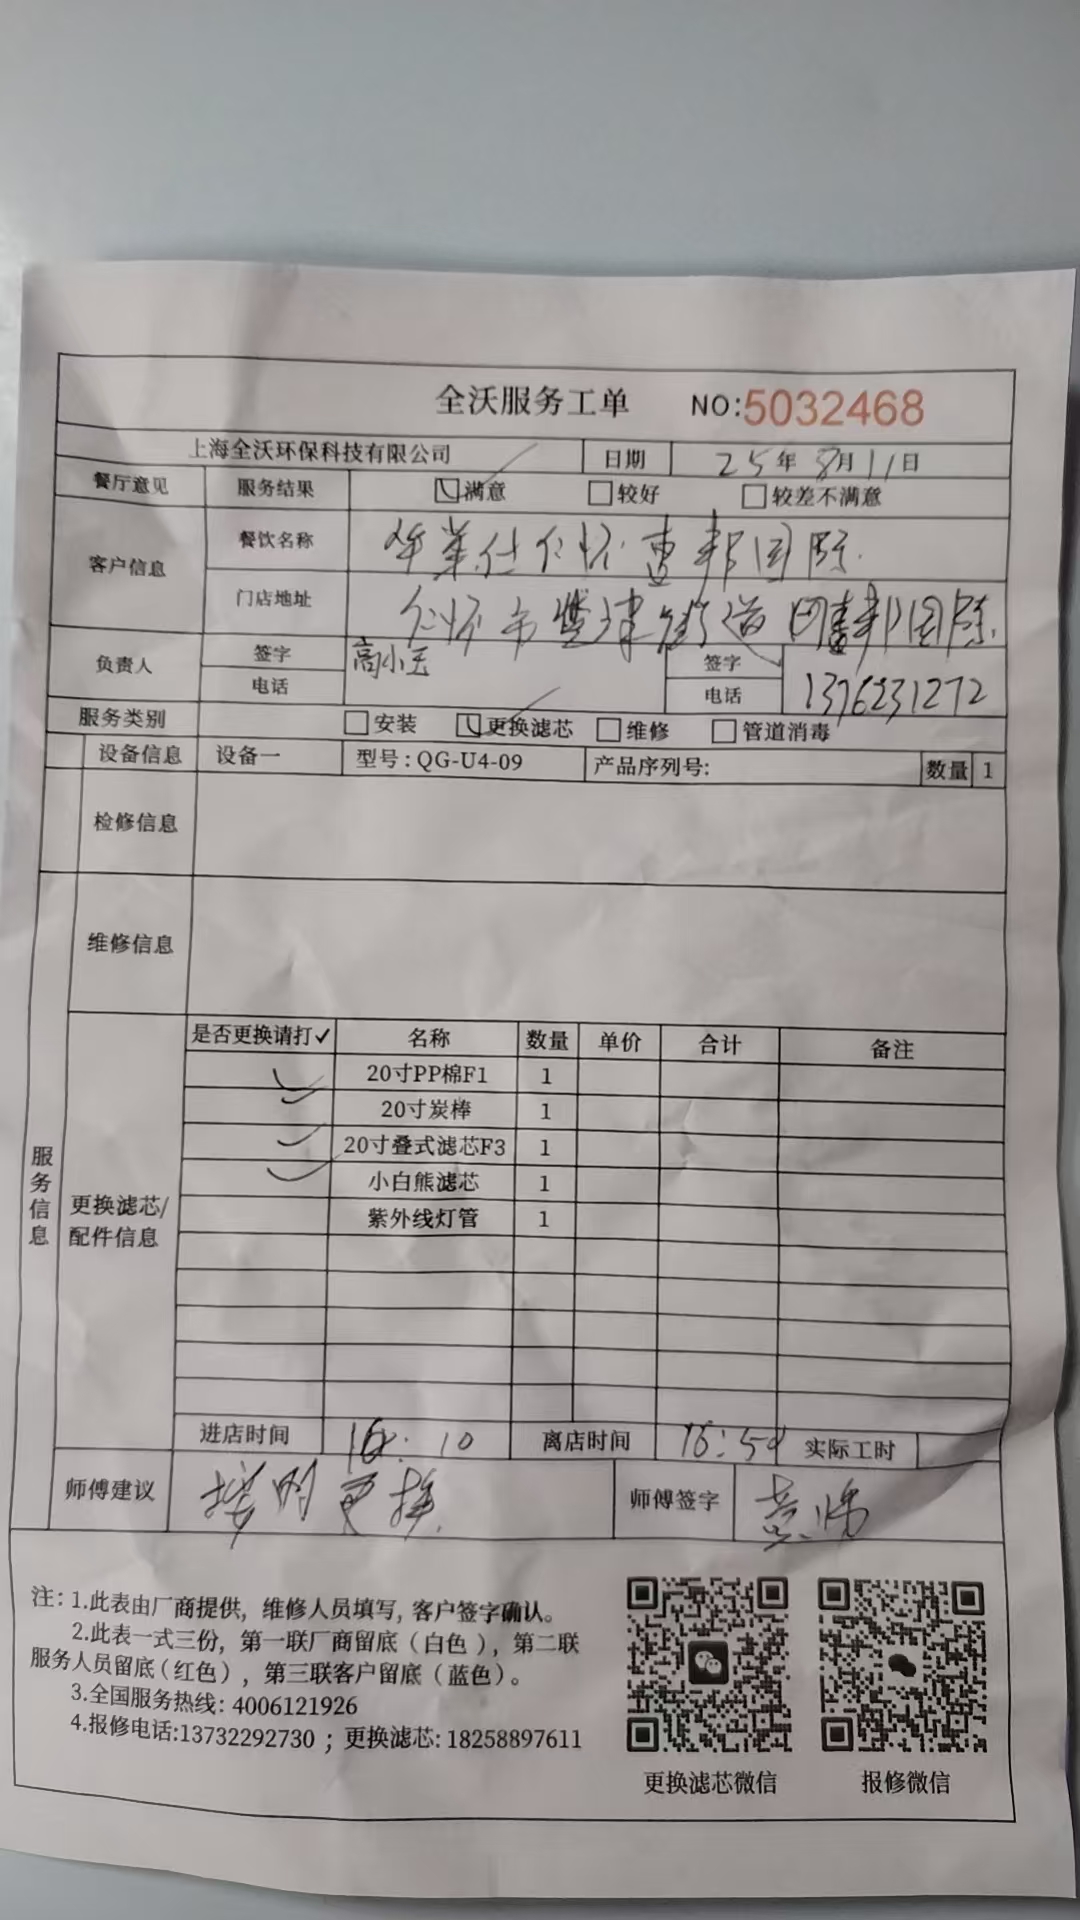 全沃服务工单 NO:5032468
上海全沃环保科技有限公司 日期 25年8月11日
餐厅意见 服务结果 满意 较好 较差不满意
客户信息 餐饮名称 华莱仕仁怀 邦国际
门店地址 仁怀市 津街道 邦国际
负责人 签字 高小 签字
电话 电话 1376231272
服务类别 安装 更换滤芯 维修 管道消毒
设备信息 设备一 型号:QG-U4-09 产品序列号: 数量 1
检修信息
维修信息
服务信息
更换滤芯/
配件信息
是否更换请打✓ 名称 数量 单价 合计 备注
✓ 20寸PP棉F1 1
✓ 20寸炭棒 1
✓ 20寸叠式滤芯F3 1
✓ 小白熊滤芯 1
紫外线灯管 1
进店时间 16:10 离店时间 16:50 实际工时
师傅建议 按时更换 师傅签字
注: 1.此表由厂商提供, 维修人员填写, 客户签字确认。
2.此表一式三份, 第一联厂商留底(白色), 第二联
服务人员留底(红色), 第三联客户留底(蓝色)。
3.全国服务热线: 4006121926
4.报修电话:13732292730 ; 更换滤芯: 18258897611
更换滤芯微信 报修微信